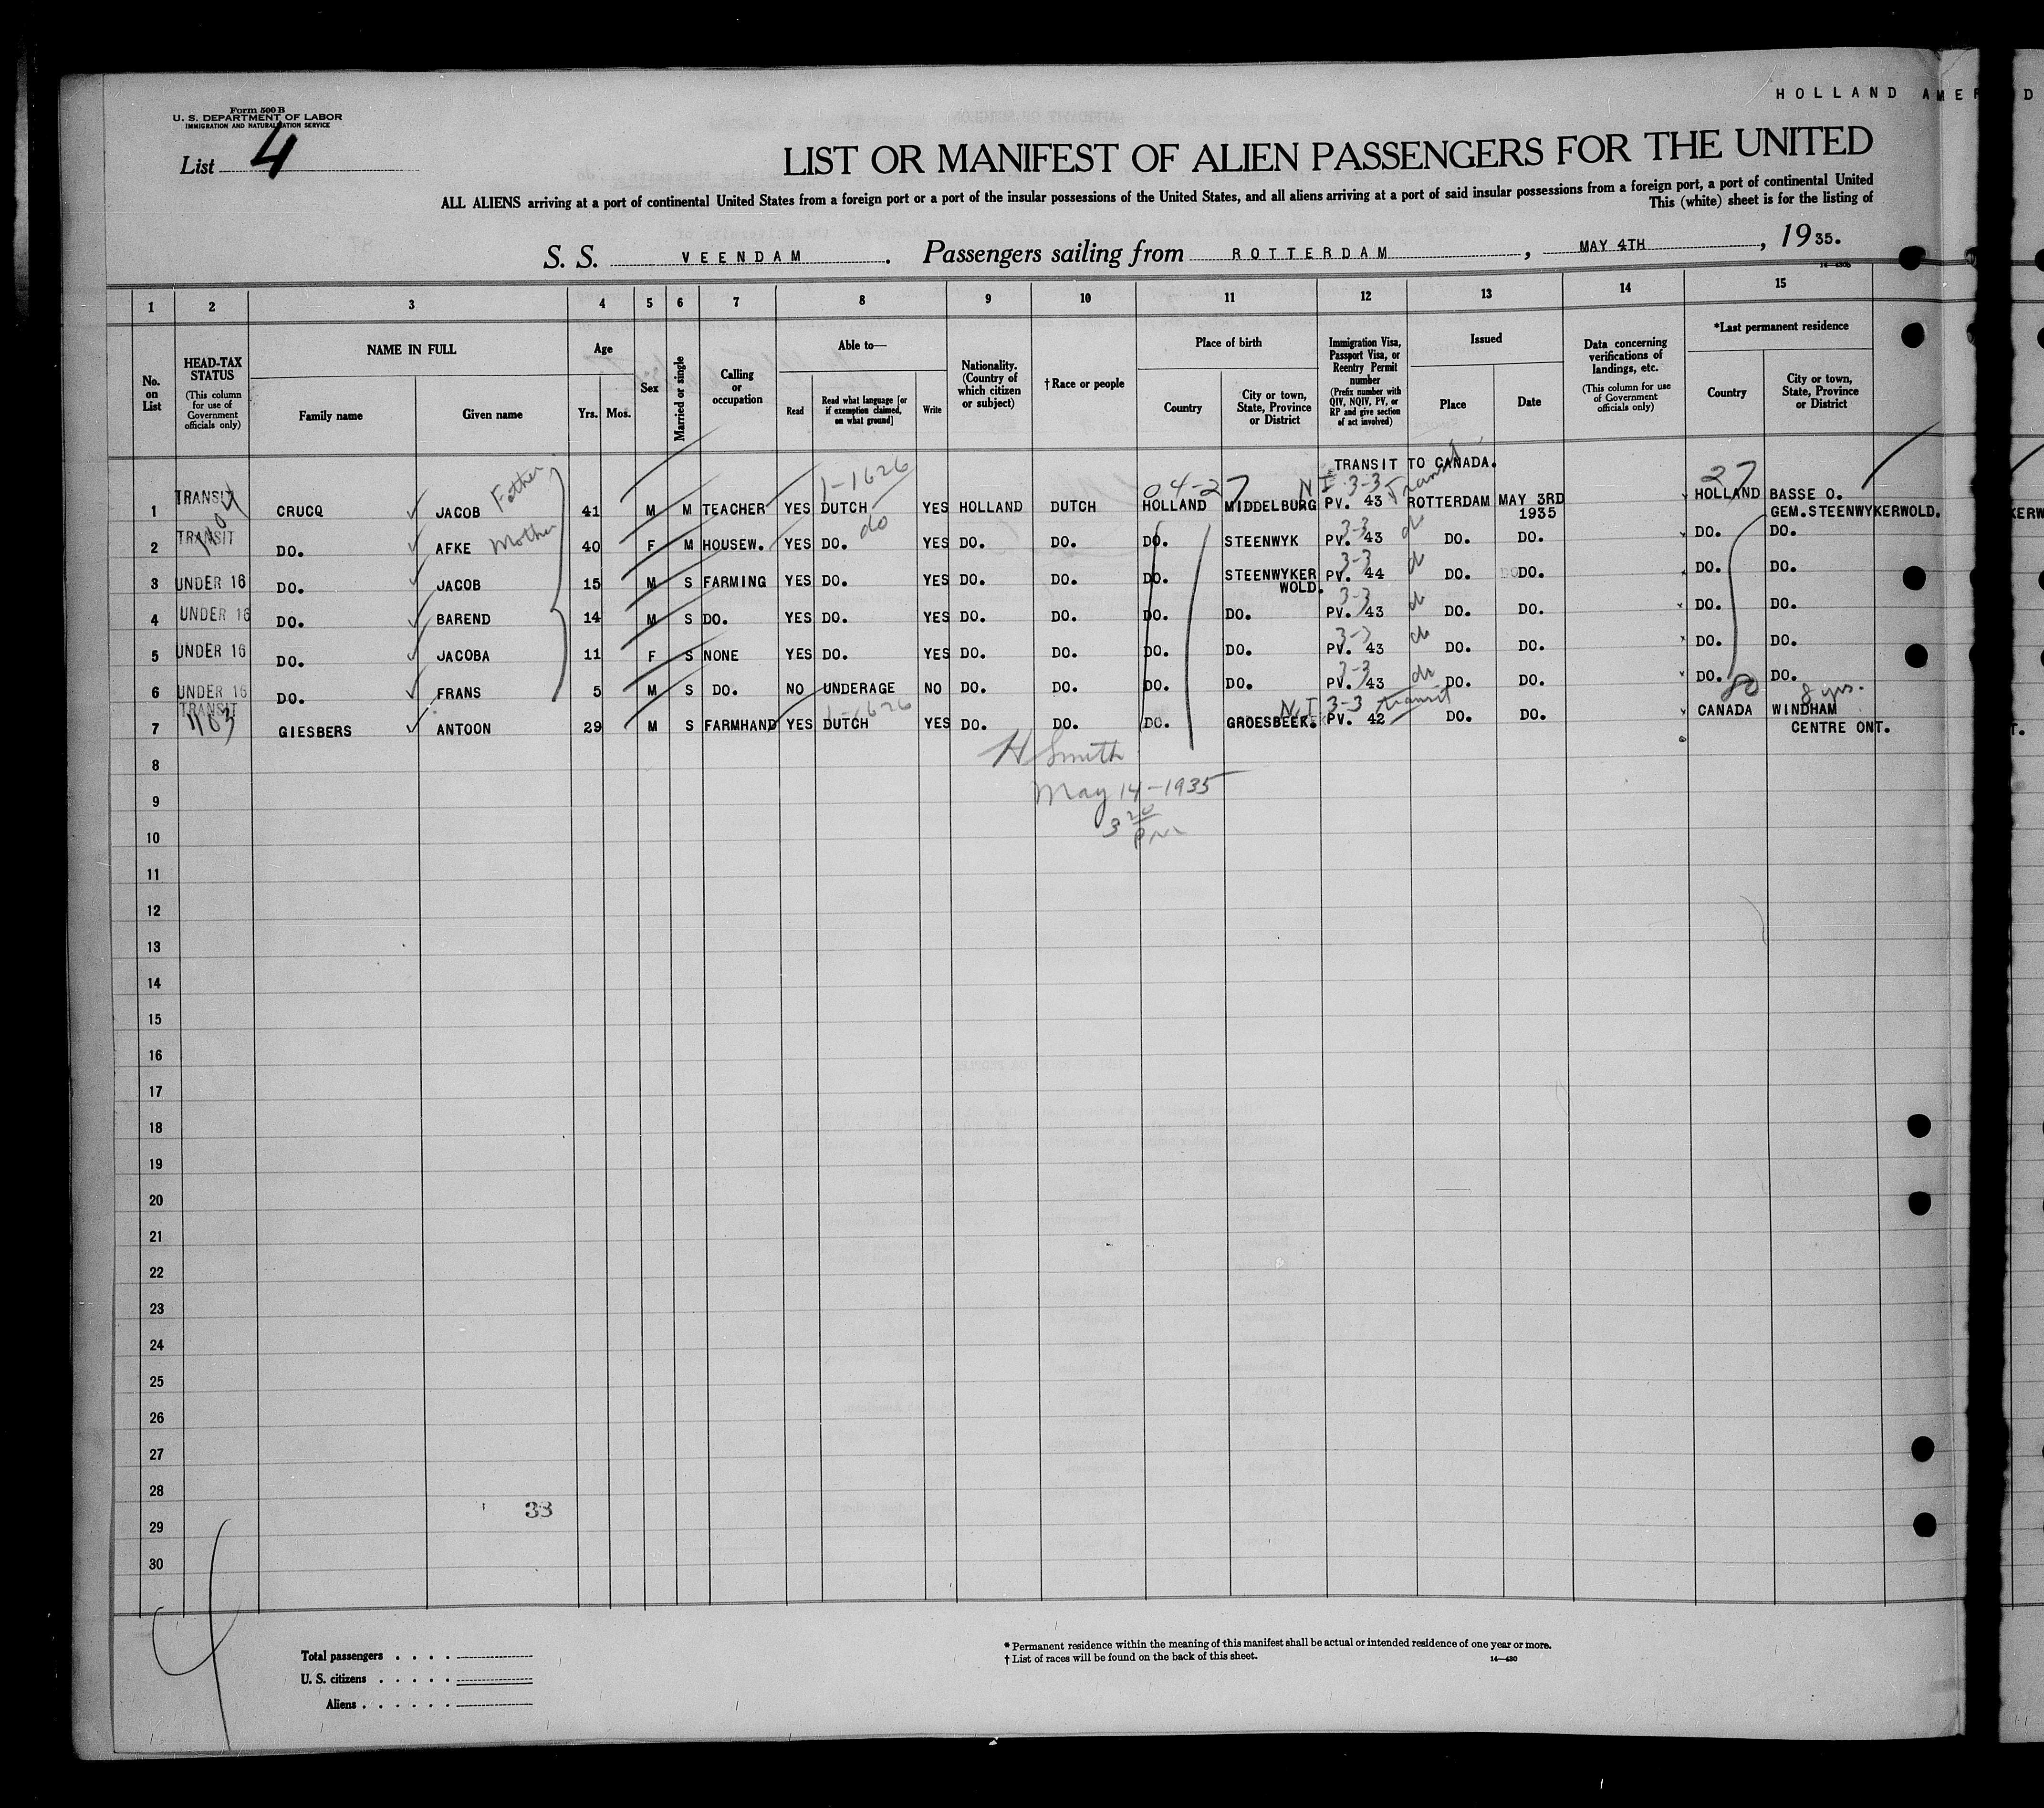 HOLLAND AMER
Form 500 B
U. S. DEPARTMENT OF LABOR
IMMIGRATION AND NATURALIZATION SERVICE
List 4
LIST OR MANIFEST OF ALIEN PASSENGERS FOR THE UNITED
ALL ALIENS arriving at a port of continental United States from a foreign port or a port of the insular possessions of the United States, and all aliens arriving at a port of said insular possessions from a foreign port, a port of continental United
This (white) sheet is for the listing of
S. S. VEENDAM. Passengers sailing from ROTTERDAM, MAY 4TH, 1935.
1 2 3 4 5 6 7 8 9 10 11 12 13 14 15
No. on List
HEAD-TAX STATUS (This column for use of Government officials only)
NAME IN FULL
Family name
Given name
Age
Yrs. Mos.
Sex
Married or single
Calling or occupation
Able to—
Read
Read what language [or if exemption claimed, on what ground]
Write
Nationality. (Country of which citizen or subject)
† Race or people
Place of birth
Country
City or town, State, Province or District
Immigration Visa, Passport Visa, or Reentry Permit number (Prefix number with QIV, NQIV, PV, or RP and give section of act involved)
Issued
Place
Date
Data concerning verifications of landings, etc. (This column for use of Government officials only)
*Last permanent residence
Country
City or town, State, Province or District
TRANSIT TO CANADA.
1-1626 04-27 N I 3-3 Transit 27
1 TRANSIT CRUCQ JACOB Father 41 M M TEACHER YES DUTCH YES HOLLAND DUTCH HOLLAND MIDDELBURG PV. 43 ROTTERDAM MAY 3RD 1935 HOLLAND BASSE O. GEM. STEENWYKERWOLD.
2 TRANSIT DO. AFKE Mother 40 F M HOUSEW. YES DO. do YES DO. DO. DO. STEENWYK 3-3 PV. 43 do DO. DO. DO. DO.
3 UNDER 16 DO. JACOB 15 M S FARMING YES DO. YES DO. DO. DO. STEENWYKER WOLD. 3-3 PV. 44 do DO. DO. DO. DO.
4 UNDER 16 DO. BAREND 14 M S DO. YES DO. YES DO. DO. DO. DO. 3-3 PV. 43 do DO. DO. DO. DO.
5 UNDER 16 DO. JACOBA 11 F S NONE YES DO. YES DO. DO. DO. DO. 3-3 PV. 43 do DO. DO. DO. DO.
6 UNDER 16 DO. FRANS 5 M S DO. NO UNDERAGE NO DO. DO. DO. DO. 3-3 PV. 43 do DO. DO. DO. DO.
1-1626 N I 3-3 transit 8 yrs.
7 TRANSIT 1103 GIESBERS ANTOON 29 M S FARMHAND YES DUTCH YES DO. DO. DO. GROESBEEK. PV. 42 DO. DO. CANADA WINDHAM CENTRE ONT.
8
H Smith
May 14-1935
9
3 20 PM
10
11
12
13
14
15
16
17
18
19
20
21
22
23
24
25
26
27
28
33
29
30
Total passengers . . . .
U. S. citizens . . . . .
Aliens . . . . . .
* Permanent residence within the meaning of this manifest shall be actual or intended residence of one year or more.
† List of races will be found on the back of this sheet.
14—430